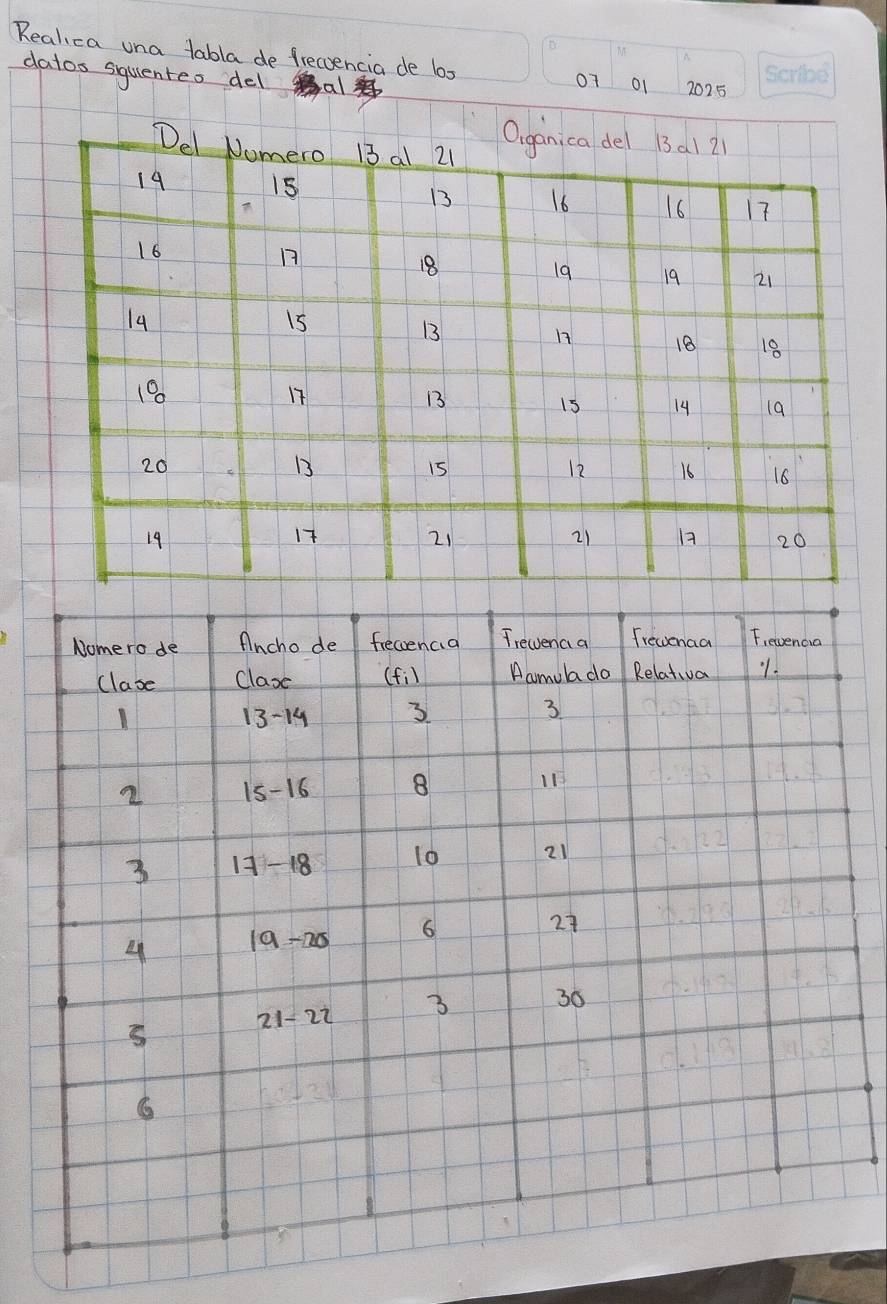 Realica una tabla de frecuencia de los
datos siguientes del al
07 01 2025
Scribe
Del Numero 13 al 21 Organica del 13 al 21
14 15 13 16 16 17
16 17 18 19 19 21
14 15 13 17 18 18
18 17 13 15 14 19
20 13 15 12 16 16
19 17 21 21 17 20
Numero de Ancho de frecuencia Frecuencia Frecuencia Frecuencia
Clase Clase (fi) Acmulado Relativa %.
1 13-14 3 3
2 15-16 8 11
3 17-18 10 21
4 19-20 6 27
5 21-22 3 30
6